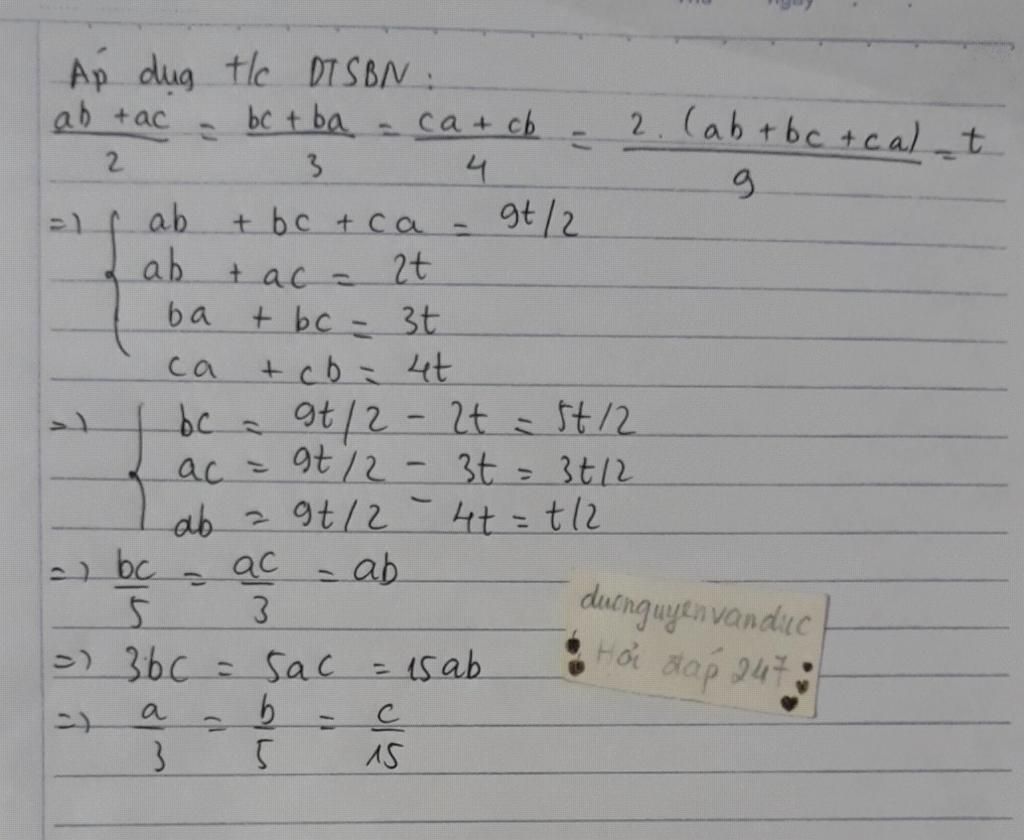 Áp dụg t/c DTSBN:
ab + ac / 2 = bc + ba / 3 = ca + cb / 4 = 2. (ab + bc + ca) / 9 = t
=> { ab + bc + ca = 9t/2
ab + ac = 2t
ba + bc = 3t
ca + cb = 4t
=> { bc = 9t/2 - 2t = 5t/2
ac = 9t/2 - 3t = 3t/2
ab = 9t/2 - 4t = t/2
=> bc/5 = ac/3 = ab
=> 3bc = 5ac = 15ab
=> a/3 = b/5 = c/15
ducnguyenvanduc
Hỏi đáp 247